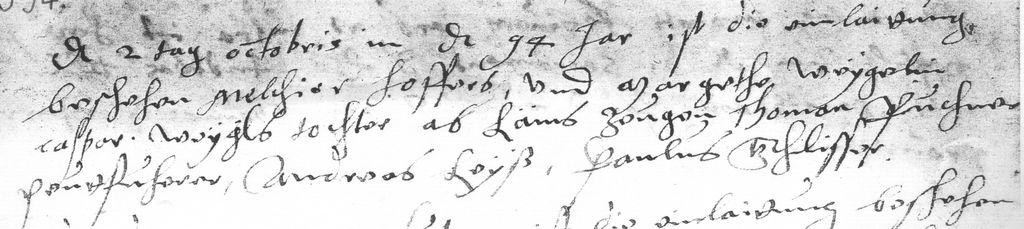 594.
A 2 tag octobris in A 94 Jar ist die einlaitung
beschehen Melchier Hoffers, und Margethe Weygelin
Caspar. Weygls tochter ab Zeugen Thoman Puchner
Andreas Leyß, Paulus Schlisser.
ist die einlaitung beschehen